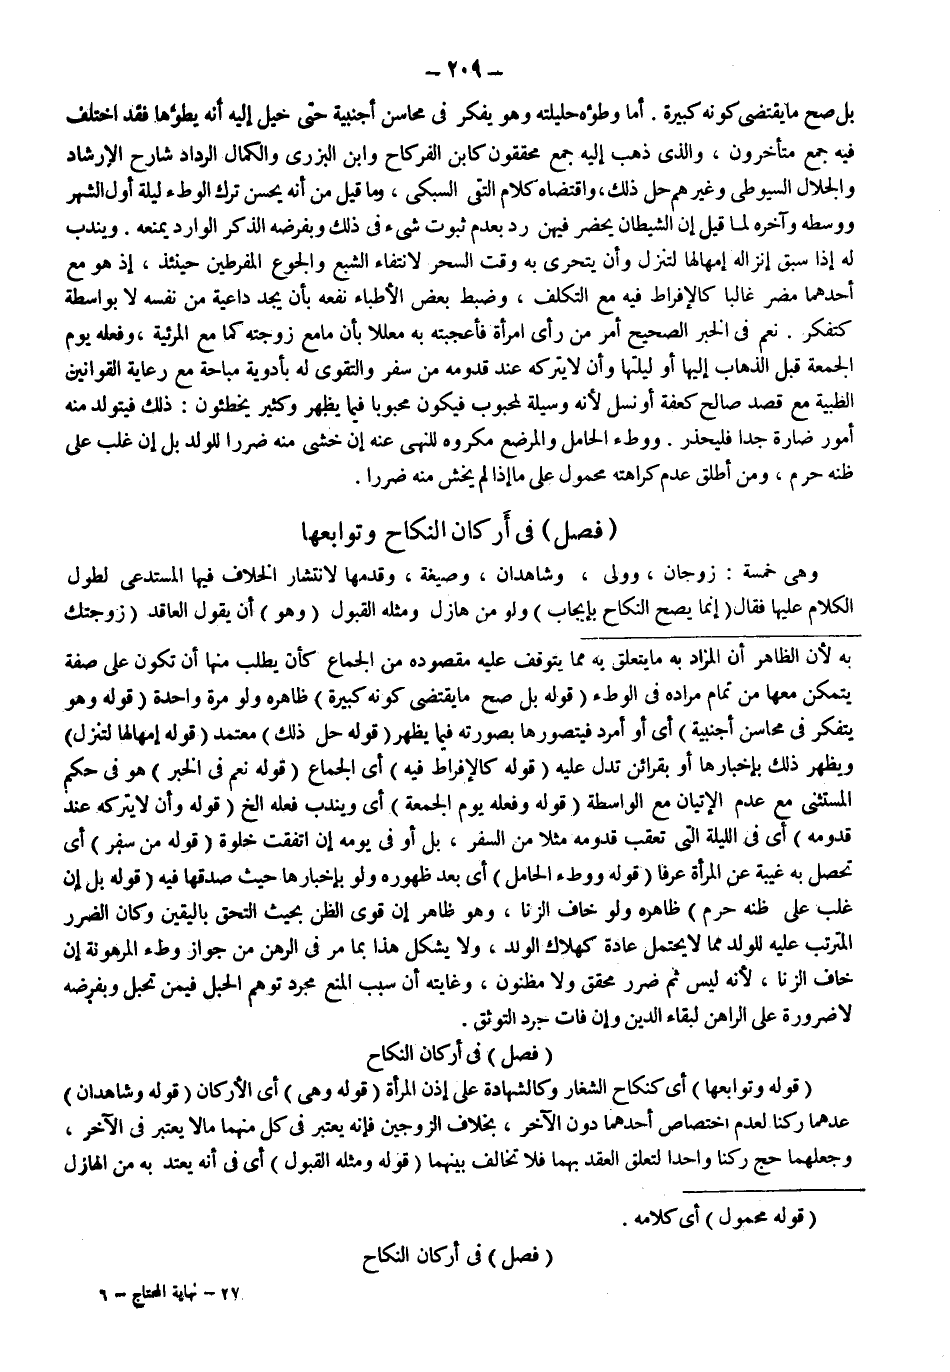 — ٢٠٩ —
بل صح مايقتضى كونه كبيرة . أما وطؤه حليلته وهو يفكر فى محاسن أجنبية حتى خيل إليه أنه يطؤها فقد اختلف
فيه جمع متأخرون ، والذى ذهب إليه جمع محققون كابن الفركاح وابن البزرى والكمال الرداد شارح الإرشاد
والجلال السيوطى وغيرهم حل ذلك، واقتضاه كلام التقى السبكى ، وما قيل من أنه يحسن ترك الوطء ليلة أول الشهر
ووسطه وآخره لما قيل إن الشيطان يحضر فيهن رد بعدم ثبوت شىء فى ذلك وبفرضه الذكر الوارد يمنعه . ويندب
له إذا سبق إنزاله إمهالها لتنزل وأن يتحرى به وقت السحر لانتفاء الشبع والجوع المفرطين حينئذ ، إذ هو مع
أحدهما مضر غالبا كالإفراط فيه مع التكلف ، وضبط بعض الأطباء نفعه بأن يجد داعية من نفسه لا بواسطة
كتفكر . نعم فى الخبر الصحيح أمر من رأى امرأة فأعجبته به معللا بأن مامع زوجته كما مع المرئية ، وفعله يوم
الجمعة قبل الذهاب إليها أو ليلتها وأن لايتركه عند قدومه من سفر والتقوى له بأدوية مباحة مع رعاية القوانين
الطبية مع قصد صالح كعفة أو نسل لأنه وسيلة لمحبوب فيكون محبوبا فيما يظهر وكثير يخطئون : ذلك فيتولد منه
أمور ضارة جدا فليحذر . ووطء الحامل والمرضع مكروه للنهى عنه إن خشى منه ضررا للولد بل إن غلب على
ظنه حرم ، ومن أطلق عدم كراهته محمول على ما إذا لم يخش منه ضررا .
( فصل ) فى أَركان النكاح وتوابعها
وهى خمسة : زوجان ، وولى ، وشاهدان ، وصيغة ، وقدمها لانتشار الخلاف فيها المستدعى لطول
الكلام عليها فقال ( إنما يصح النكاح بإيجاب ) ولو من هازل ومثله القبول ( وهو ) أن يقول العاقد ( زوجتك
به لأن الظاهر أن المراد به مايتعلق به مما يتوقف عليه مقصوده من الجماع كأن يطلب منها أن تكون على صفة
يتمكن معها من تمام مراده فى الوطء ( قوله بل صح مايقتضى كونه كبيرة ) ظاهره ولو مرة واحدة ( قوله وهو
يتفكر فى محاسن أجنبية ) أى أو أمرد فيتصورها بصورته فيما يظهر ( قوله حل ذلك ) معتمد ( قوله إمهالها لتنزل )
ويظهر ذلك بإخبارها أو بقرائن تدل عليه ( قوله كالإفراط فيه ) أى الجماع ( قوله نعم فى الخبر ) هو فى حكم
المستثنى مع عدم الإتيان مع الواسطة ( قوله وفعله يوم الجمعة ) أى ويندب فعله الخ ( قوله وأن لايتركه عند
قدومه ) أى فى الليلة التى تعقب قدومه مثلا من السفر ، بل أو فى يومه إن اتفقت خلوة ( قوله من سفر ) أى
تحصل به غيبة عن المرأة عرفا ( قوله ووطء الحامل ) أى بعد ظهوره ولو بإخبارها حيث صدقها فيه ( قوله بل إن
غلب على ظنه حرم ) ظاهره ولو خاف الزنا ، وهو ظاهر إن قوى الظن بحيث التحق باليقين وكان الضرر
المترتب عليه للولد مما لايحتمل عادة كهلاك الولد ، ولا يشكل هذا بما مر فى الرهن من جواز وطء المرهونة إن
خاف الزنا ، لأنه ليس ثم ضرر محقق ولا مظنون ، وغايته أن سبب المنع مجرد توهم الحبل فيمن تحبل وبفرضه
لاضرورة على الراهن لبقاء الدين وإن فات جرد التوثق .
( فصل ) فى أركان النكاح
( قوله وتوابعها ) أى كنكاح الشغار وكالشهادة على إذن المرأة ( قوله وهى ) أى الأركان ( قوله وشاهدان )
عدهما ركنا لعدم اختصاص أحدهما دون الآخر ، بخلاف الزوجين فإنه يعتبر فى كل منهما مالا يعتبر فى الآخر ،
وجعلهما حج ركنا واحدا لتعلق العقد بهما فلا تخالف بينهما ( قوله ومثله القبول ) أى فى أنه يعتد به من الهازل
( قوله محمول ) أى كلامه .
( فصل ) فى أركان النكاح
٢٧ – نهاية المحتاج – ٦